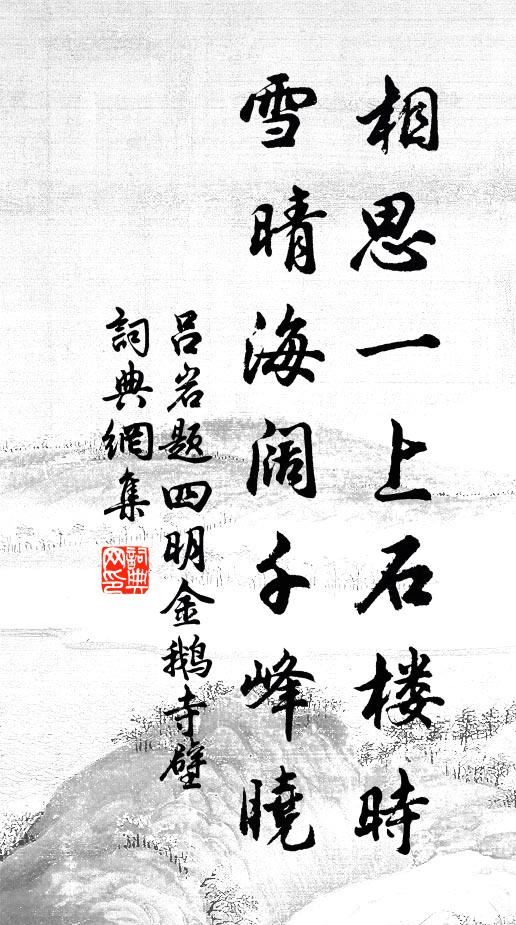 相思一上石楼時
雪晴海阔千峰曉
吕岩题四明金鹅寺壁
詞典網集
詞典网印